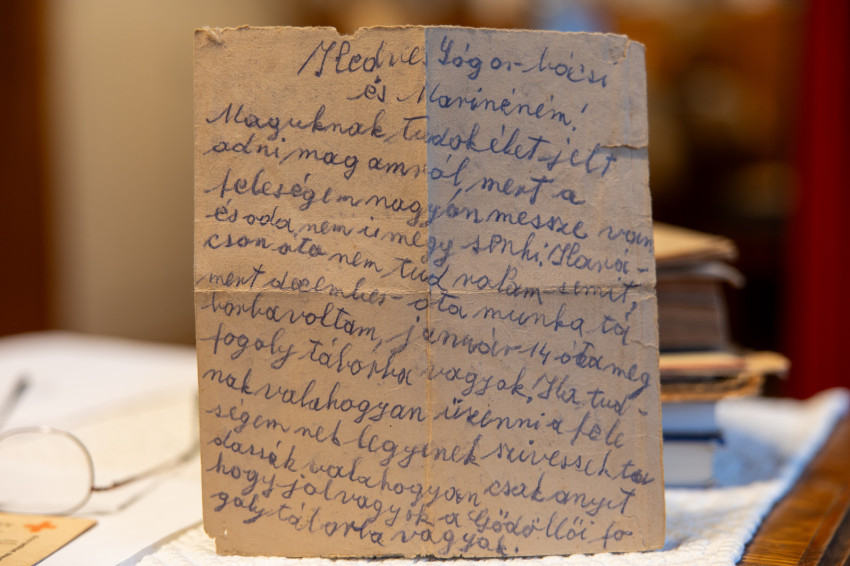 Kedves Gógor-bácsi
és Marinéném!
Maguknak, tudok élet jelt
adni, magamról, mert a
feleségem nagyón messze van
és oda, nem is mégy senki. Kará-
cson óta nem tud rólam semit,
mert december-óta munka tá
borba voltam, január 14 óta meg
fogoly táborba vagyok, Ha tud-
nak valahogyan üzenni a fele
ségem nek legyenek szivessek tu
dassák valahogyan csak anyit
hogy jól vagyok a Gödöllői fo
goly táborba vagyok.